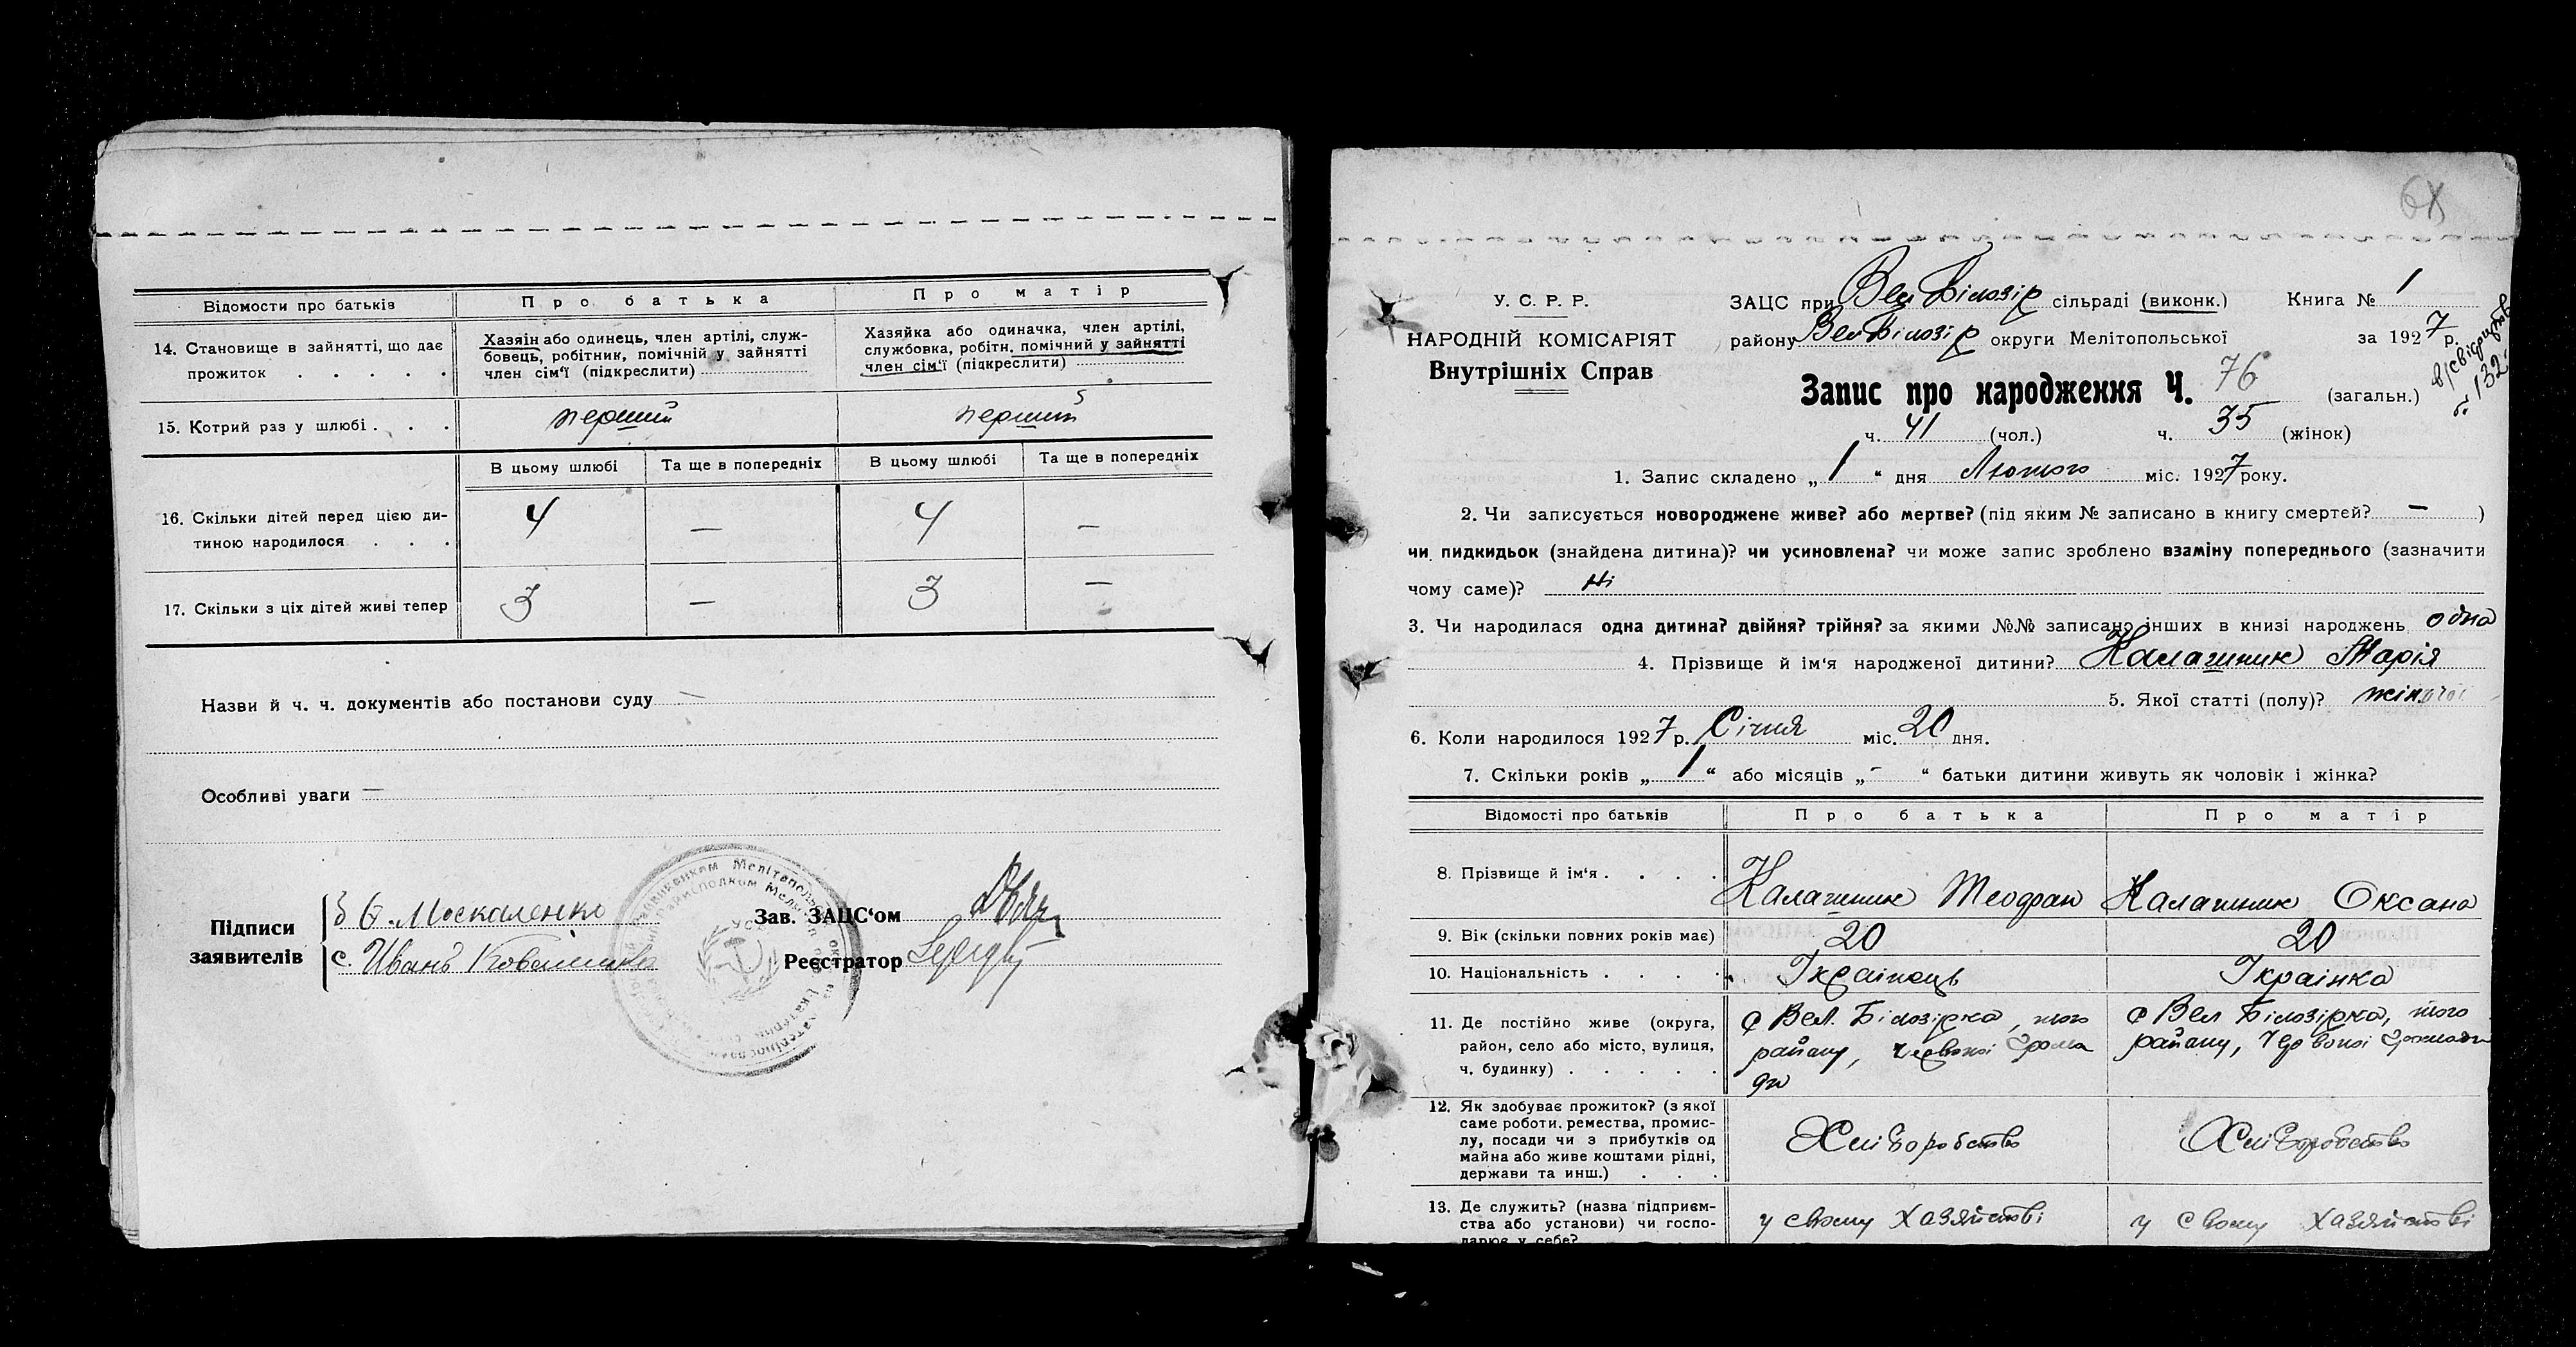 Відомости про батьків
Про батька
Про матір
14. Становище в зайнятті, що дає
прожиток . . . . .
Хазяін або одинець, член артілі, служ-
бовець, робітник, помічній у зайнятті
член сім‘ї (підкреслити)
Хазяйка або одиначка, член артілі,
службовка, робітн. помічний у зайнятті
член сім‘ї (підкреслити)
15. Котрий раз у шлюбі . . .
перший
перший
В цьому шлюбі
Та ще в попередніх
В цьому шлюбі
Та ще в попередніх
16. Скільки дітей перед цією ди-
тиною народилося . . .
4 — 4 —
17. Скільки з ціх дітей живі тепер
3 — 3 —
Назви й ч. ч. документів або постанови суду —
Особливі уваги —
Підписи
заявителів
Москаленко
с. Иванъ
Зав. ЗАЦС‘ом
Реєстратор
У. С. Р. Р.
НАРОДНІЙ КОМІСАРІЯТ
Внутрішніх Справ
ЗАЦС при Вел Білозір сільраді (виконк.)
Книга № 1
району Вел Білозір округи Мелітопольської
за 1927 р.
132
Запис про народження Ч. 76 (загальн.)
ч. 41 (чол.) ч. 35 (жінок)
1. Запис складено „ 1 “ дня Лютого міс. 1927 року.
2. Чи записується новороджене живе? або мертве? (під яким № записано в книгу смертей? — )
чи пидкидьок (знайдена дитина)? чи усиновлена? чи може запис зроблено взаміну попереднього (зазначити
чому саме)? Ні
3. Чи народилася одна дитина? двійня? трійня? за якими №№ записано інших в книзі народжень одна
4. Прізвище й ім‘я народженої дитини? Калашник Марія
5. Якої статті (полу)? жіночої
6. Коли народилося 1927 р. Січня міс. 20 дня.
7. Скільки років „ 1 “ або місяців „ - “ батьки дитини живуть як чоловік і жінка?
Відомості про батьків
Про батька
Про матір
8. Прізвище й ім‘я . . . .
Калашник Теофан
Калашник Оксана
9. Вік (скільки повних років має)
20
20
10. Національність . . . .
Українець
Українка
11. Де постійно живе (округа,
район, село або місто, вулиця,
ч. будинку) . . . . .
с Вел. Білозірка, того
району, Червоної Грома
ди
с Вел Білозірка, того
району, Червоної Громади
12. Як здобуває прожиток? (з якої
саме роботи. ремества, промис-
лу, посади чи з прибутків од
майна або живе коштами рідні,
держави та инш.) . . .
Хліборобство
Хліборобство
13. Де служить? (назва підприєм-
ства або установи) чи госпо-
дарює у себе?
у своєму хазяйстві
у своєму хазяйстві